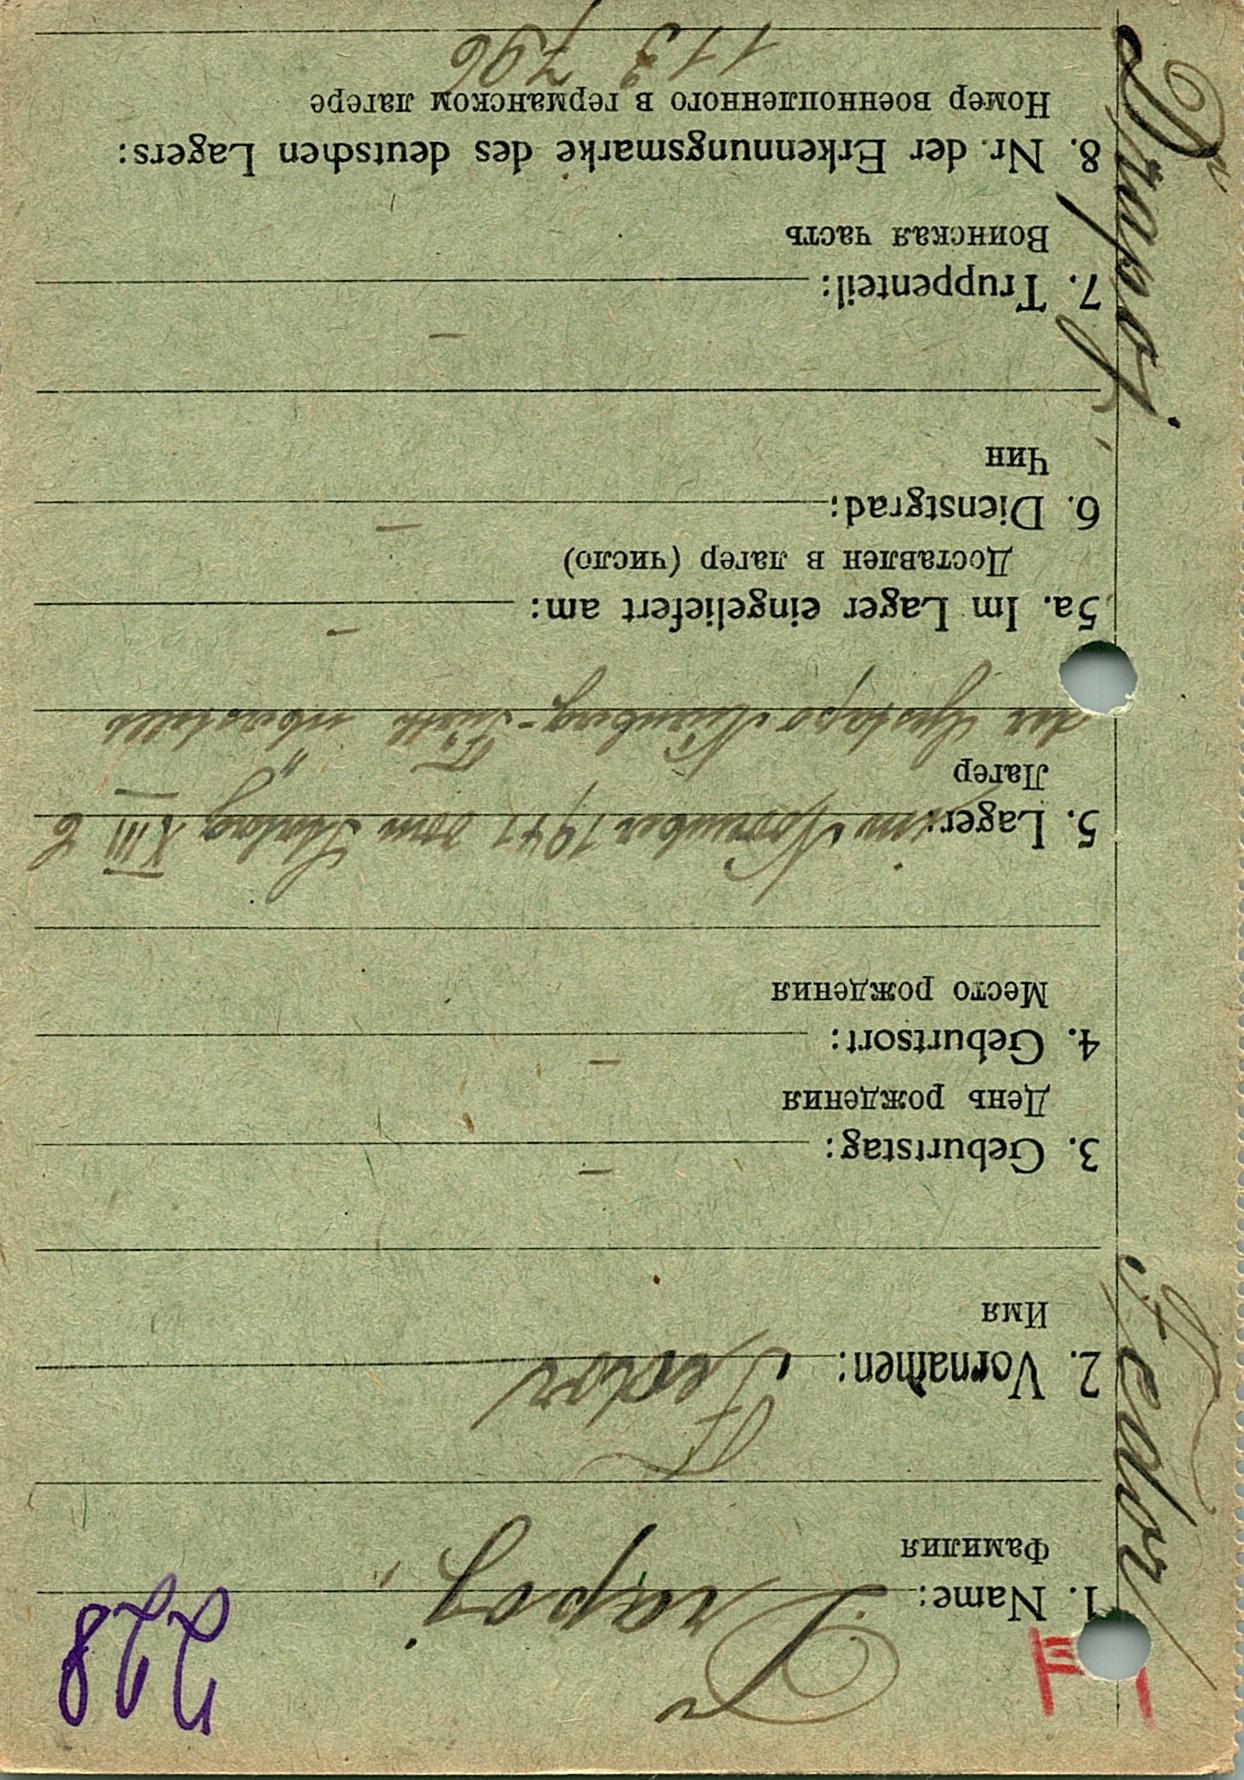 228
1. Name: Drapoj,
Фамилия
2. Vornamen: Fedor
Имя
3. Geburtstag: –
День рождения
4. Geburtsort: –
Место рождения
5. Lager: im November 1941 vom Stalag XIII B
Лагер
der Gestapo Nürnberg-Fürth überstellt
5a. Im Lager eingeliefert am: –
Доставлен в лагер (число)
6. Dienstgrad: –
Чин
–
7. Truppenteil:
Воинская часть
8. Nr. der Erkennungsmarke des deutschen Lagers:
Номер военнопленного в германском лагере
113 796
Drapoj, Fedor